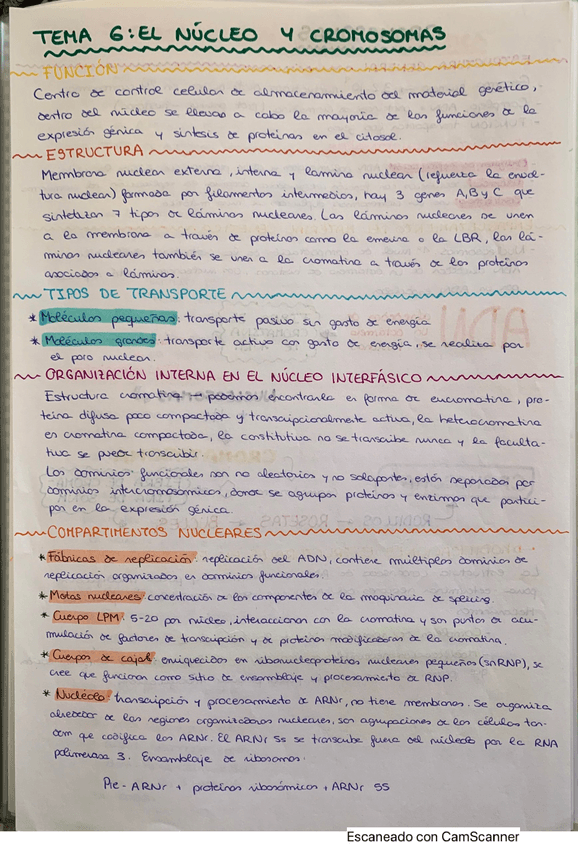 TEMA 6: EL NÚCLEO Y CROMOSOMAS
FUNCIÓN
Centro de control celular de almacenamiento del material genético,
dentro del núcleo se llevan a cabo la mayoría de las funciones de la
expresión génica y síntesis de proteínas en el citosol.
ESTRUCTURA
Membrana nuclear externa, interna y lámina nuclear (refuerza la envol-
tura nuclear) formada por filamentos intermedios, hay 3 genes A, B y C que
sintetizan 7 tipos de láminas nucleares. Las láminas nucleares se unen
a la membrana a través de proteínas como la emerina o la LBR, las lá-
minas nucleares también se unen a la cromatina a través de las proteínas
asociadas a láminas.
TIPOS DE TRANSPORTE
* Moléculas pequeñas: transporte pasivo sin gasto de energía
* Moléculas grandes: transporte activo con gasto de energía, se realiza por
el poro nuclear.
ORGANIZACIÓN INTERNA EN EL NÚCLEO INTERFÁSICO
Estructura cromatina → podemos encontrarla en forma de eucromatina, pro-
teína difusa poco compactada y transcripcionalmente activa, la heterocromatina
es cromatina compactada, la constitutiva no se transcribe nunca y la faculta-
tiva se puede transcribir.
Los dominios funcionales son no aleatorios y no solapantes, están separados por
dominios intercromosómicos, donde se agrupan proteínas y enzimas que partici-
pan en la expresión génica.
COMPARTIMENTOS NUCLEARES
* Fábricas de replicación: replicación del ADN, contiene múltiples dominios de
replicación organizados en dominios funcionales.
* Motas nucleares: concentración de los componentes de la maquinaria de splicing.
* Cuerpo LPM: 5-20 por núcleo, interaccionan con la cromatina y son puntos de acu-
mulación de factores de transcripción y de proteínas modificadoras de la cromatina.
* Cuerpos de cajal: enriquecidos en ribonucleoproteínas nucleares pequeñas (snRNP), se
cree que funcionan como sitio de ensamblaje y procesamiento de RNP.
* Nucléolo: transcripción y procesamiento de ARNr, no tiene membranas. Se organiza
alrededor de las regiones organizadoras nucleares, son agrupaciones de las células tan-
dem que codifica los ARNr. El ARNr 5s se transcribe fuera del núcleolo por la RNA
polimerasa 3. Ensamblaje de ribosomas.
Pre-ARNr + proteínas ribosómicas + ARNr 5S
Escaneado con CamScanner